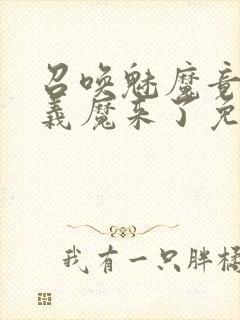 召唤魅魔竟
义魔来了免
我有一只胖橘